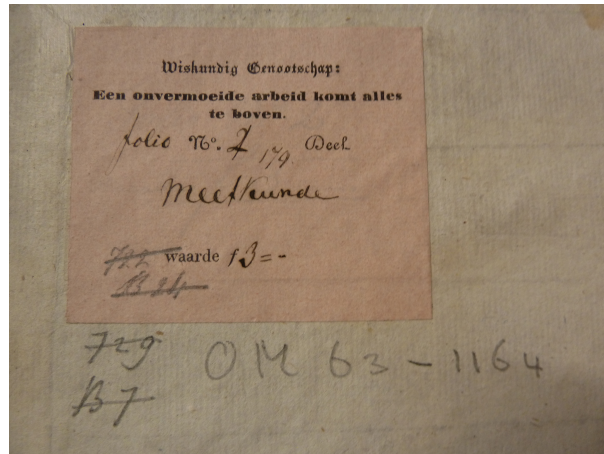 Wiskundig Genootschap:
Een onvermoeide arbeid komt alles
te boven.
folio No. 7 179 Deel
Meetkunde
722 waarde f 3=-
B 24
729
B 7
OM 63-1164